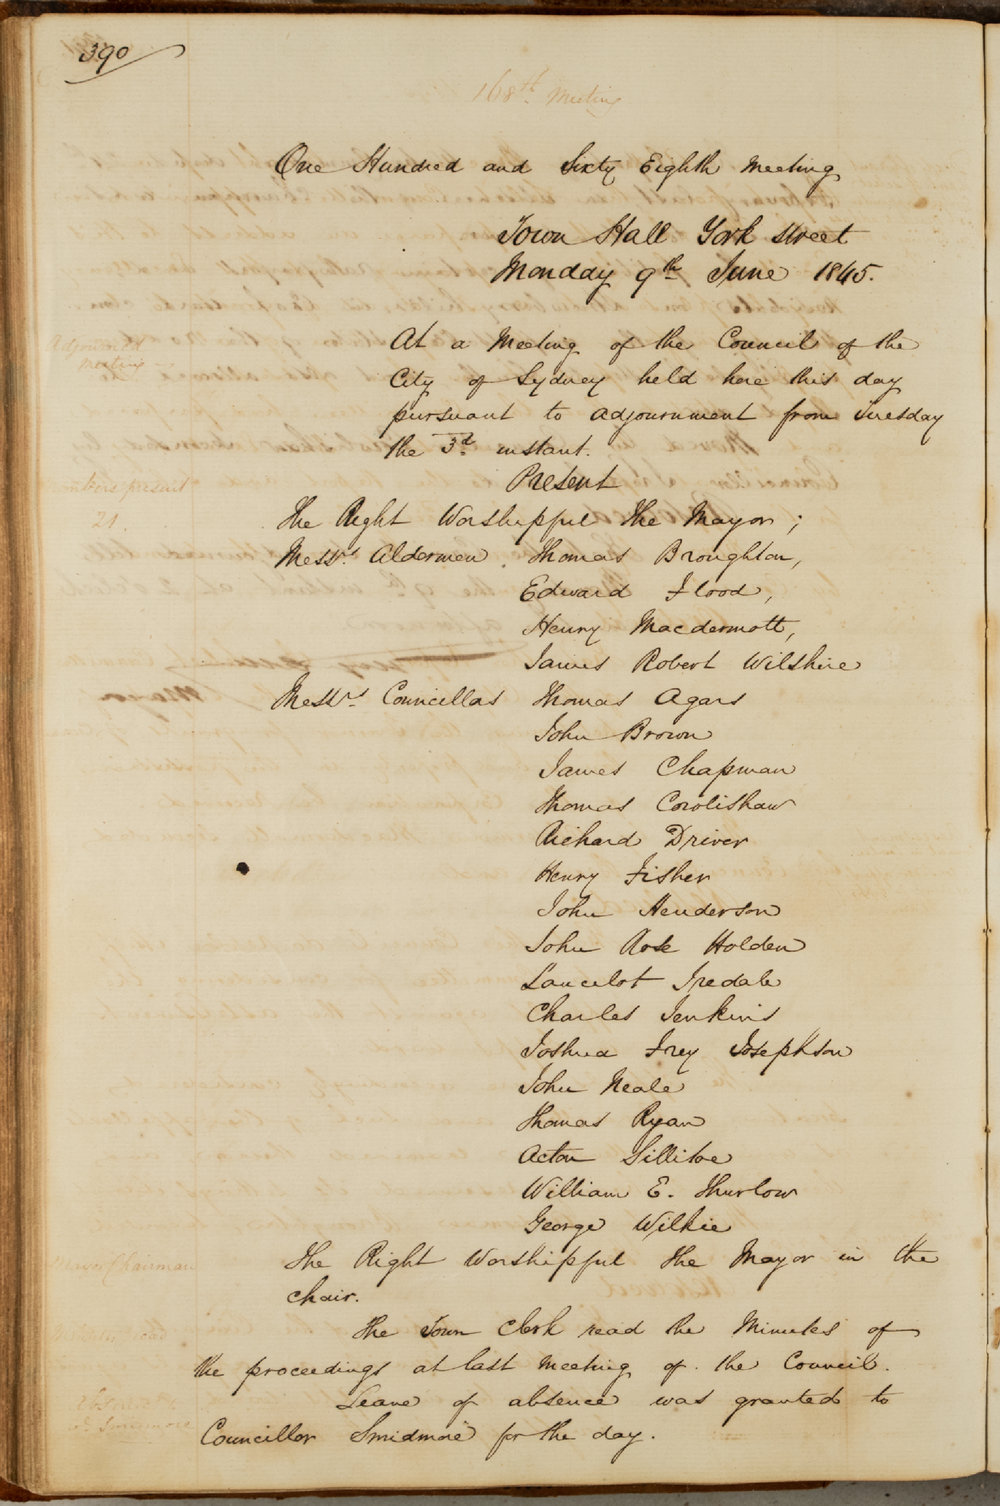 390
168th Meeting
One Hundred and Sixty Eighth Meeting
Town Hall York street
Monday 9th June 1845.
Adjourned
meeting
At a Meeting of the Council of the
City of Sydney held here this day
pursuant to adjournment from Tuesday
the 3d instant.
Present
present
21.
The Right Worshipful The Mayor;
Messrs. Aldermen. Thomas Broughton,
Edward Flood,
Henry Macdermott,
James Robert Wilshire
Messrs. Councillors Thomas Agars
John Brown
James Chapman
Thomas Cowlishaw
Richard Driver
Henry Fisher
John Henderson
John Rose Holden
Lancelot Iredale
Charles Jenkins
Joshua Frey Josephson
John Neale
Thomas Ryan
Acton Sillitoe
William E. Thurlow
George Wilkie
Mayor Chairman
The Right Worshipful the Mayor in the
Chair.
The Town Clerk read the Minutes of
the proceedings at last Meeting of the Council.
Leave of absence was granted to
Councillor Smidmore for the day.